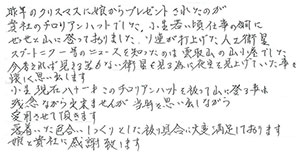 昨年のクリスマスに娘からプレゼントされたのが
貴社のチロリアンハットでした、小生若い頃仕事の傍に
せっせと山に登っておりました、ソ連が打上げた人工衛星
スプートニク一号のニュースを知ったのは雲取山の山小屋でした
今考えれば見える筈がない衛星を見る為に夜空を見上げていた事を
懐しく思い出します
小生現在八十一才このチロリアンハットを被って山に登る事は
残念ながら出来ませんが当時を思い出しながら
愛用させて頂きます
落着いた色合いしっくりとした被り具合に大変満足しております
娘と貴社に感謝致します